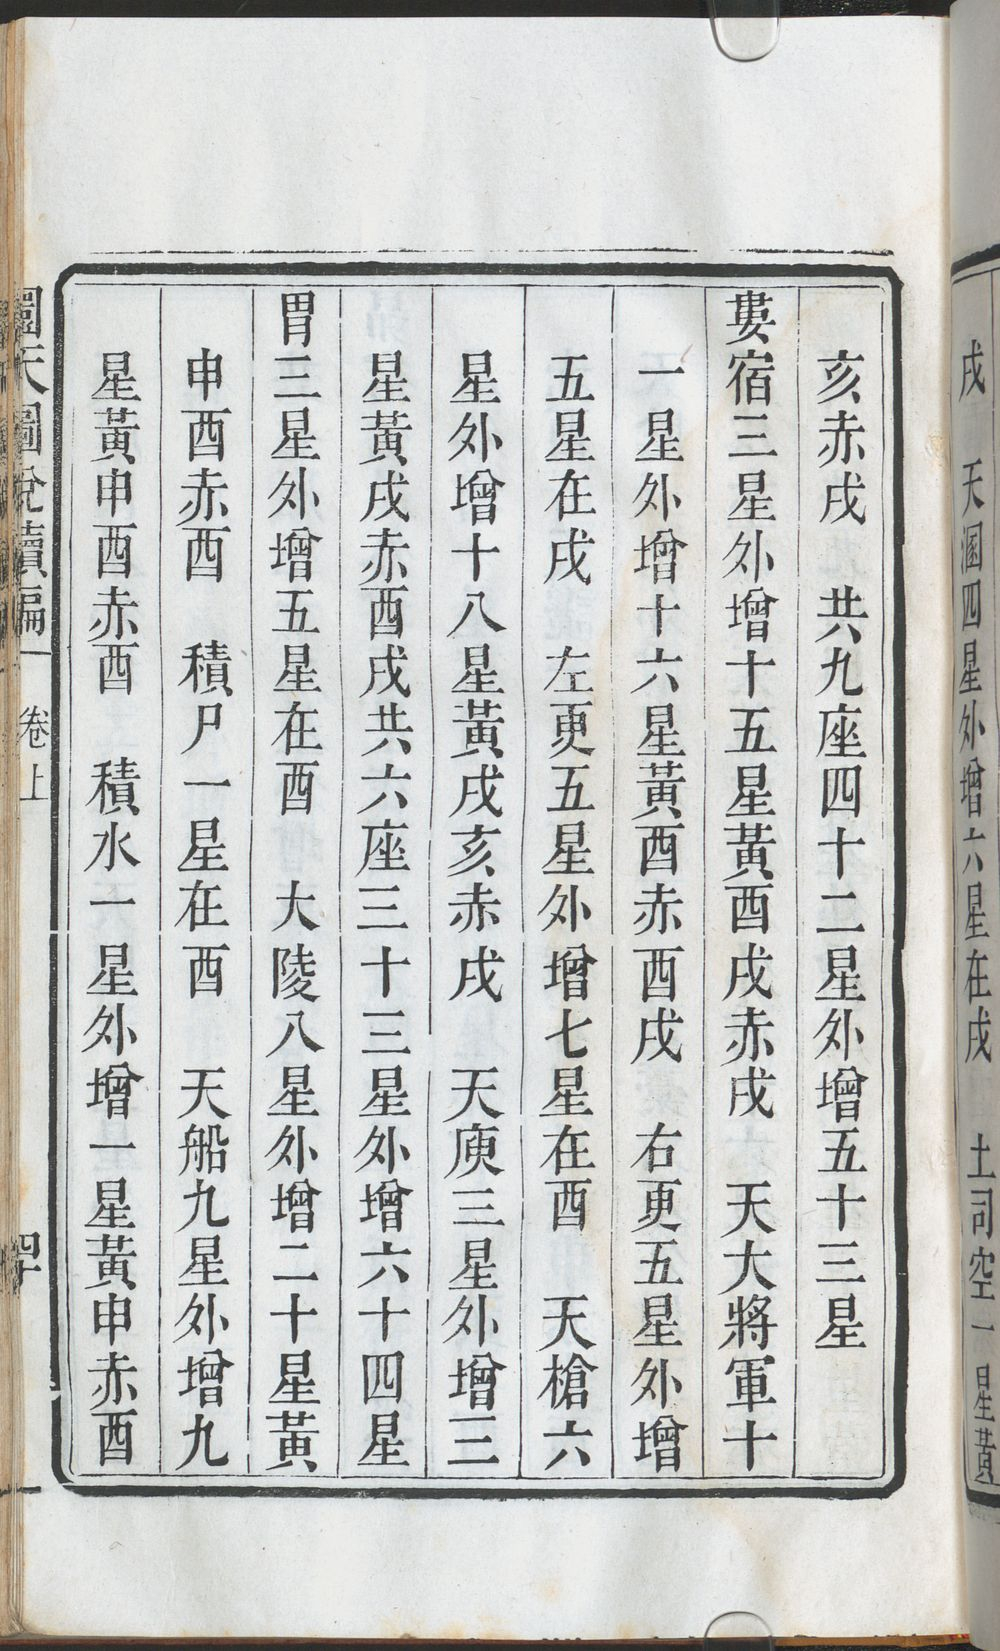 戌　天溷四星外增六星在戌　土司空一星黃
亥赤戌　共九座四十二星外增五十三星
婁宿三星外增十五星黃酉戌赤戌　天大將軍十
一星外增十六星黃酉赤酉戌　右更五星外增
五星在戌　左更五星外增七星在酉　天槍六
星外增十八星黃戌亥赤戌　天庾三星外增三
星黃戌赤酉戌共六座三十三星外增六十四星
胃三星外增五星在酉　大陵八星外增二十星黃
申酉赤酉　積尸一星在酉　天船九星外增九
星黃申酉赤酉　積水一星外增一星黃申赤酉
圜天圖說續編　卷上　四十